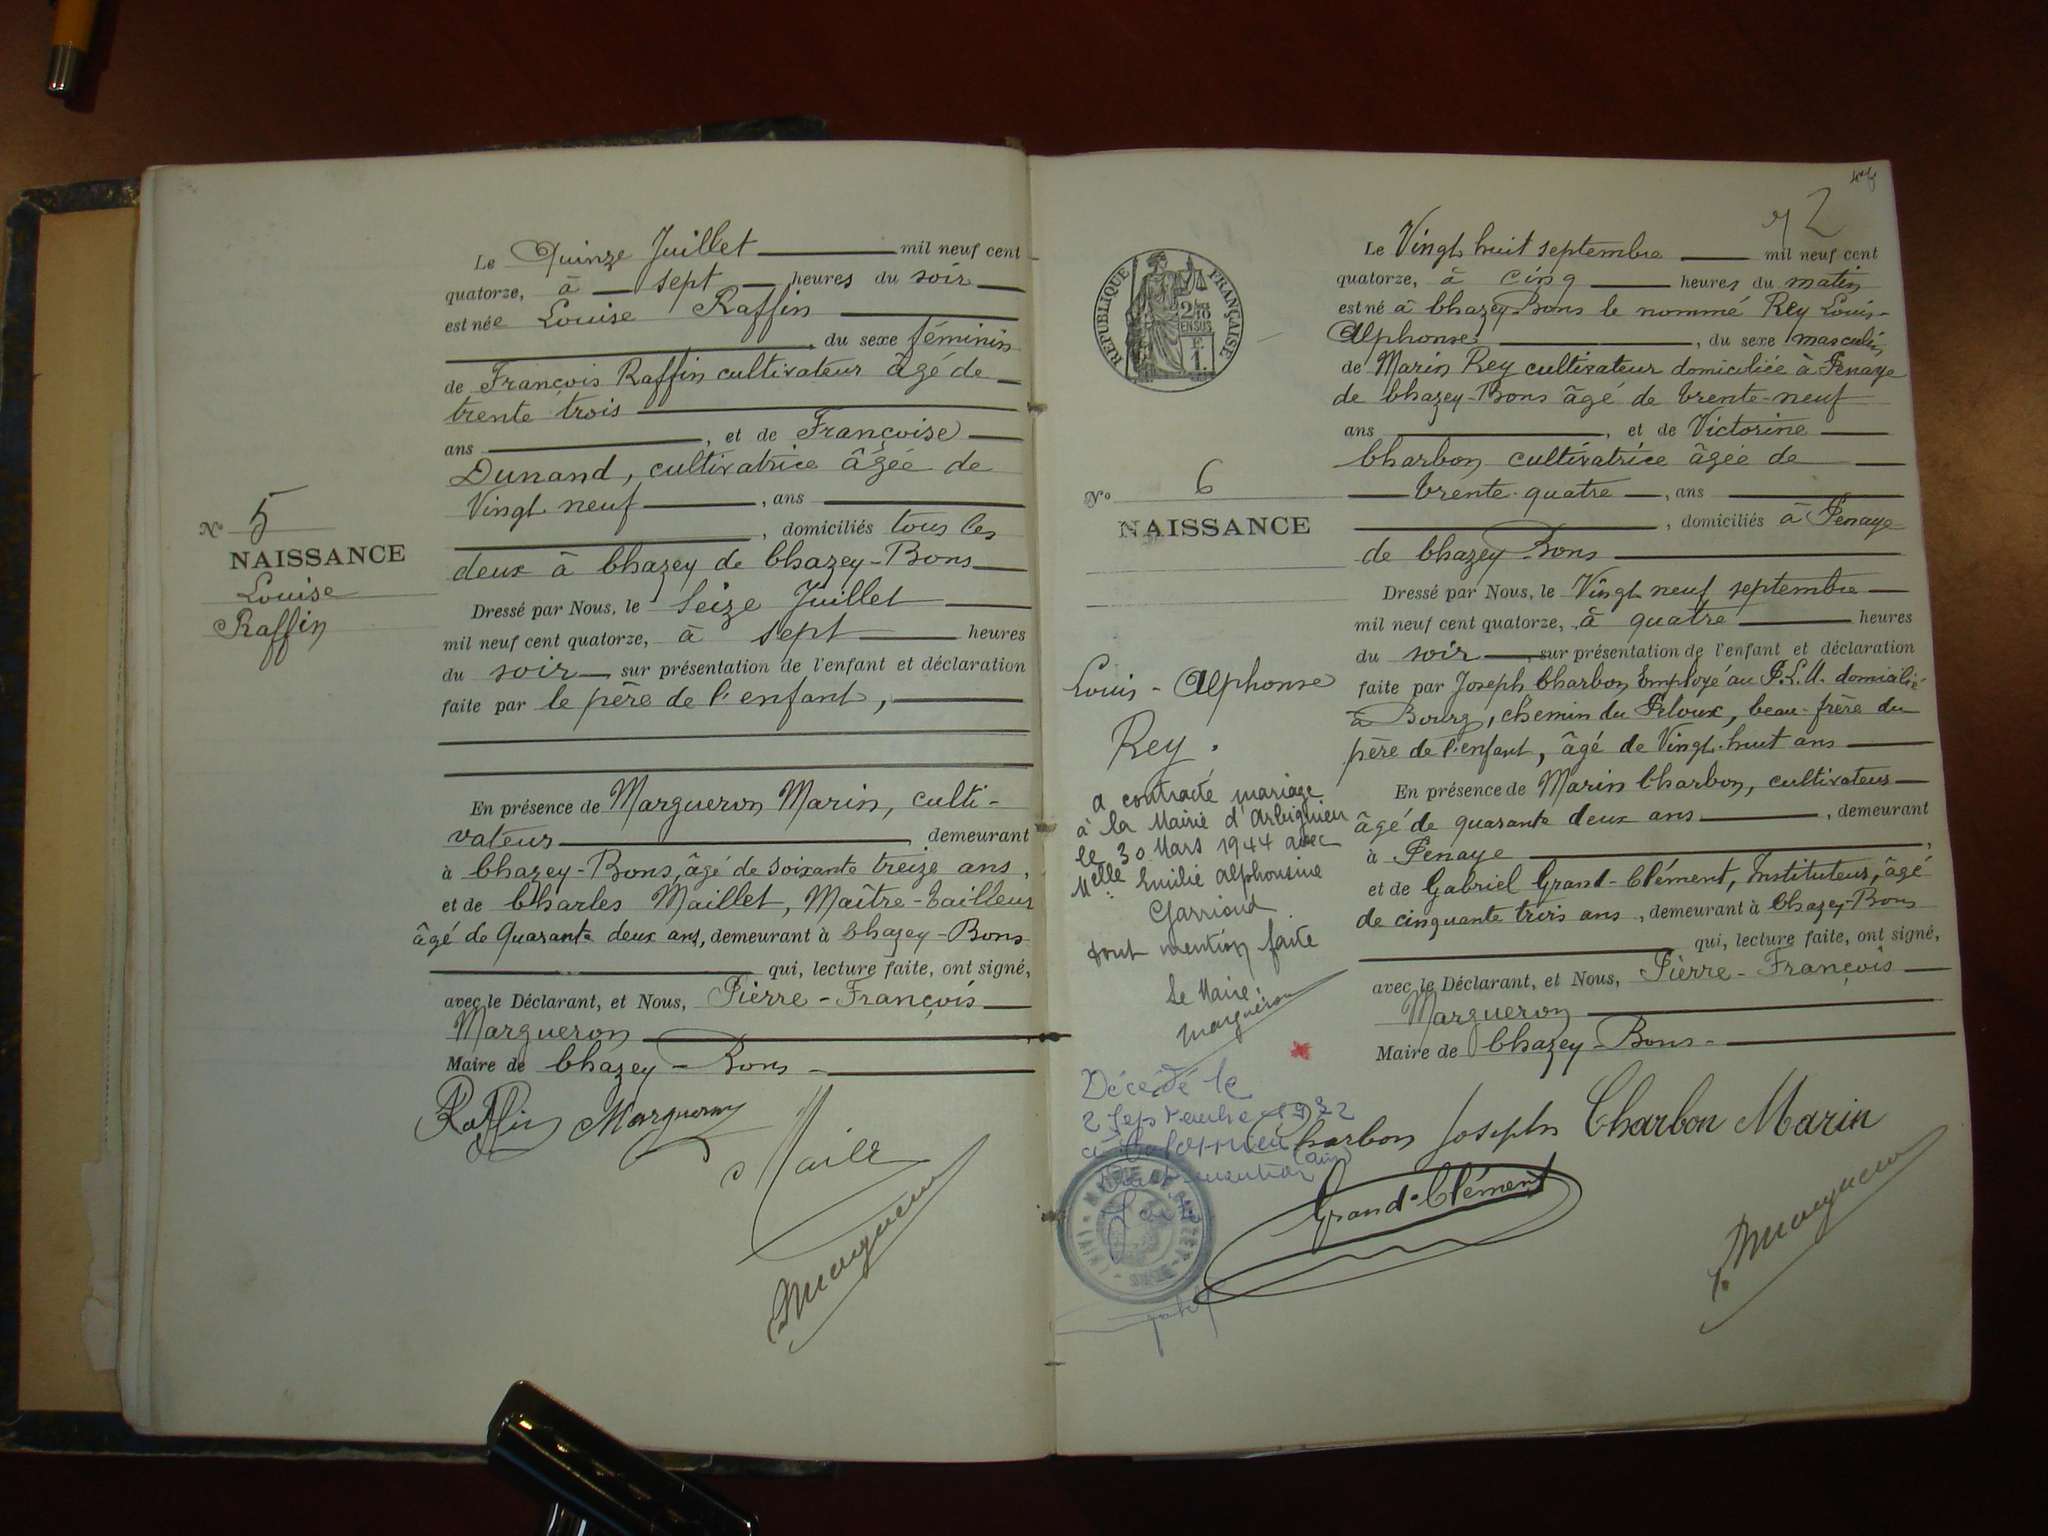 Le Quinze Juillet mil neuf cent
quatorze, à sept heures du soir
est née Louise Raffin
, du sexe féminin
de François Raffin cultivateur âgé de
trente trois
ans , et de Françoise
Dunand, cultivatrice âgée de
Vingt neuf , ans
, domiciliés tous les
deux à Chazey de Chazey-Bons
Dressé par Nous, le Seize Juillet
mil neuf cent quatorze, à sept heures
du soir sur présentation de l'enfant et déclaration
faite par le père de l'enfant,
En présence de Margueron Marin, culti-
vateur demeurant
à Chazey-Bons, âgé de soixante treize ans,
et de Charles Maillet, Maître-tailleur
âgé de Quarante deux ans, demeurant à Chazey-Bons
qui, lecture faite, ont signé,
avec le Déclarant, et Nous, Pierre-François
Margueron
Maire de Chazey-Bons-
Raffin Margueron
Margueron
No 5
NAISSANCE
Louise
Raffin
2
Le Vingt huit septembre mil neuf cent
quatorze, à cinq heures du matin
est né à Chazey-Bons le nommé Rey Louis-
Alphonse , du sexe masculin
de Marin Rey cultivateur domiciliée à Penaye
de Chazey-Bons âgé de trente-neuf
ans , et de Victorine
Charbon cultivatrice âgée de
trente-quatre , ans
, domiciliés à Penaye
de Chazey-Bons
Dressé par Nous, le Vingt neuf septembre
mil neuf cent quatorze, à quatre heures
du soir , sur présentation de l'enfant et déclaration
faite par Joseph Charbon Employé au P.L.M. domicilié
à Bourg, chemin du Peloux, beau-frère du
père de l'enfant, âgé de Vingt-huit ans
En présence de Marin Charbon, cultivateur
âgé de quarante deux ans , demeurant
à Penaye ,
et de Gabriel Grand-Clément, Instituteur, âgé
de cinquante trois ans, demeurant à Chazey-Bons
qui, lecture faite, ont signé,
avec le Déclarant, et Nous, Pierre-François
Margueron
Maire de Chazey-Bons-
Charbon Joseph Charbon Marin
Grand-Clément
Margueron
REPUBLIQUE FRANÇAISE
No 6
NAISSANCE
Louis-Alphonse
Rey.
a contracté mariage
à la Mairie d'Arbignieu
le 30 Mars 1944 avec
Melle Emilie Alphonsine
dont mention faite
Le Maire:
Margueron
Décédé le
2 Septembre
(Ain)
mention